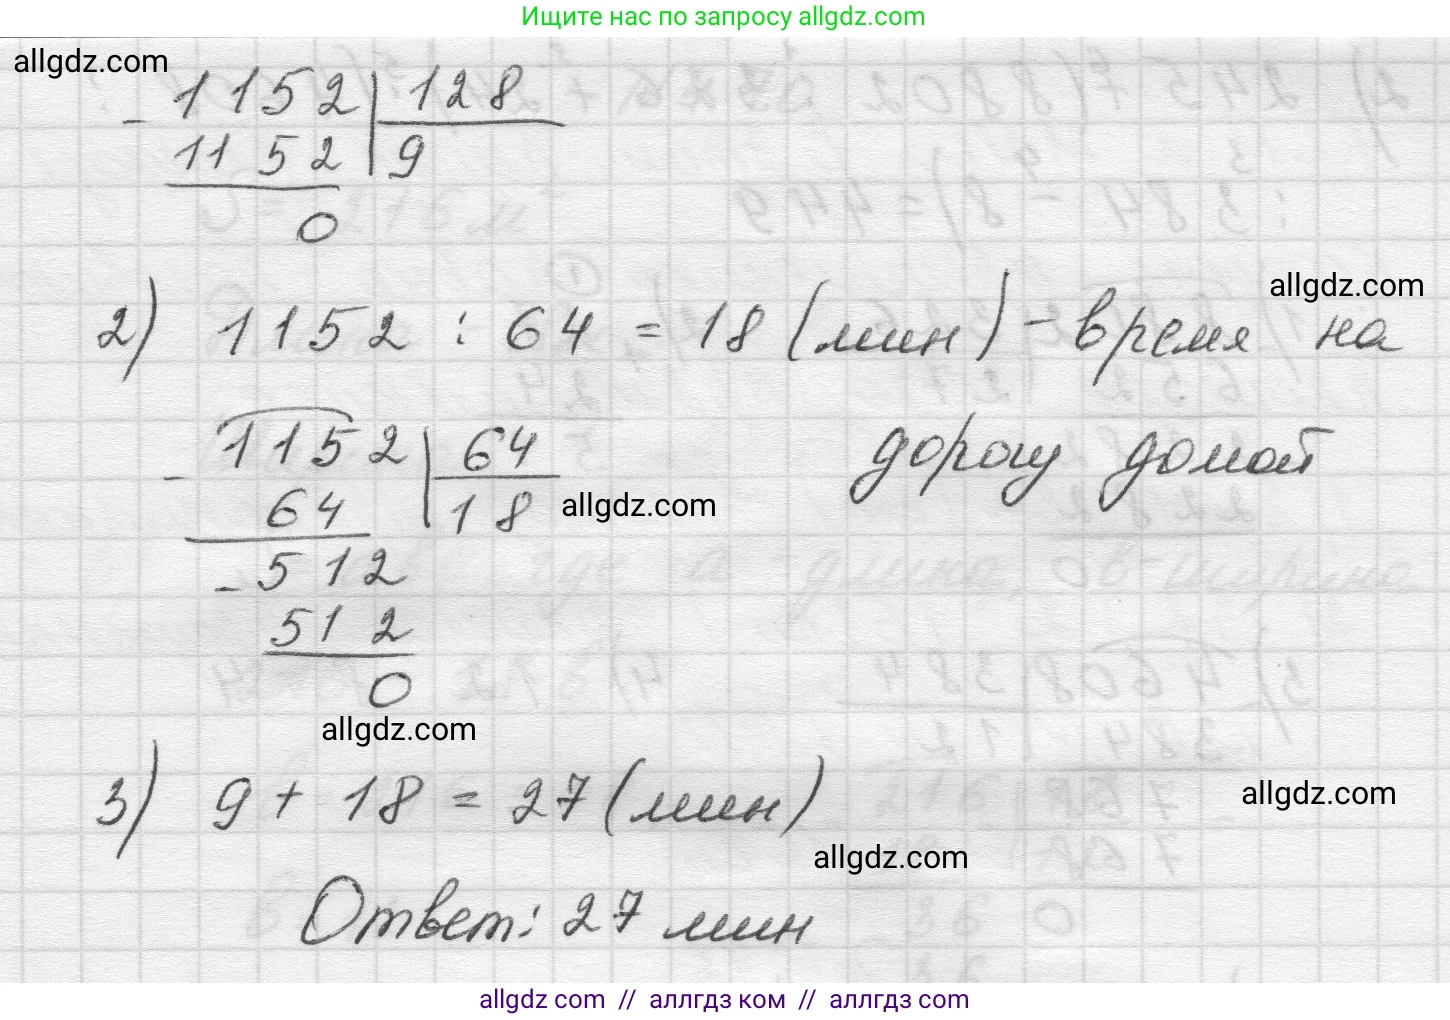 Ищите нас по запросу allgdz.com
allgdz.com
- 1152 | 128
1152 | 9
0
allgdz.com
2) 1152 : 64 = 18 (мин) - время на
дорогу домой
- 1152 | 64
64 | 18
allgdz.com
- 512
512
0
allgdz.com
3) 9 + 18 = 27 (мин)
allgdz.com
allgdz.com
Ответ: 27 мин
allgdz com // аллгдз ком // аллгдз com